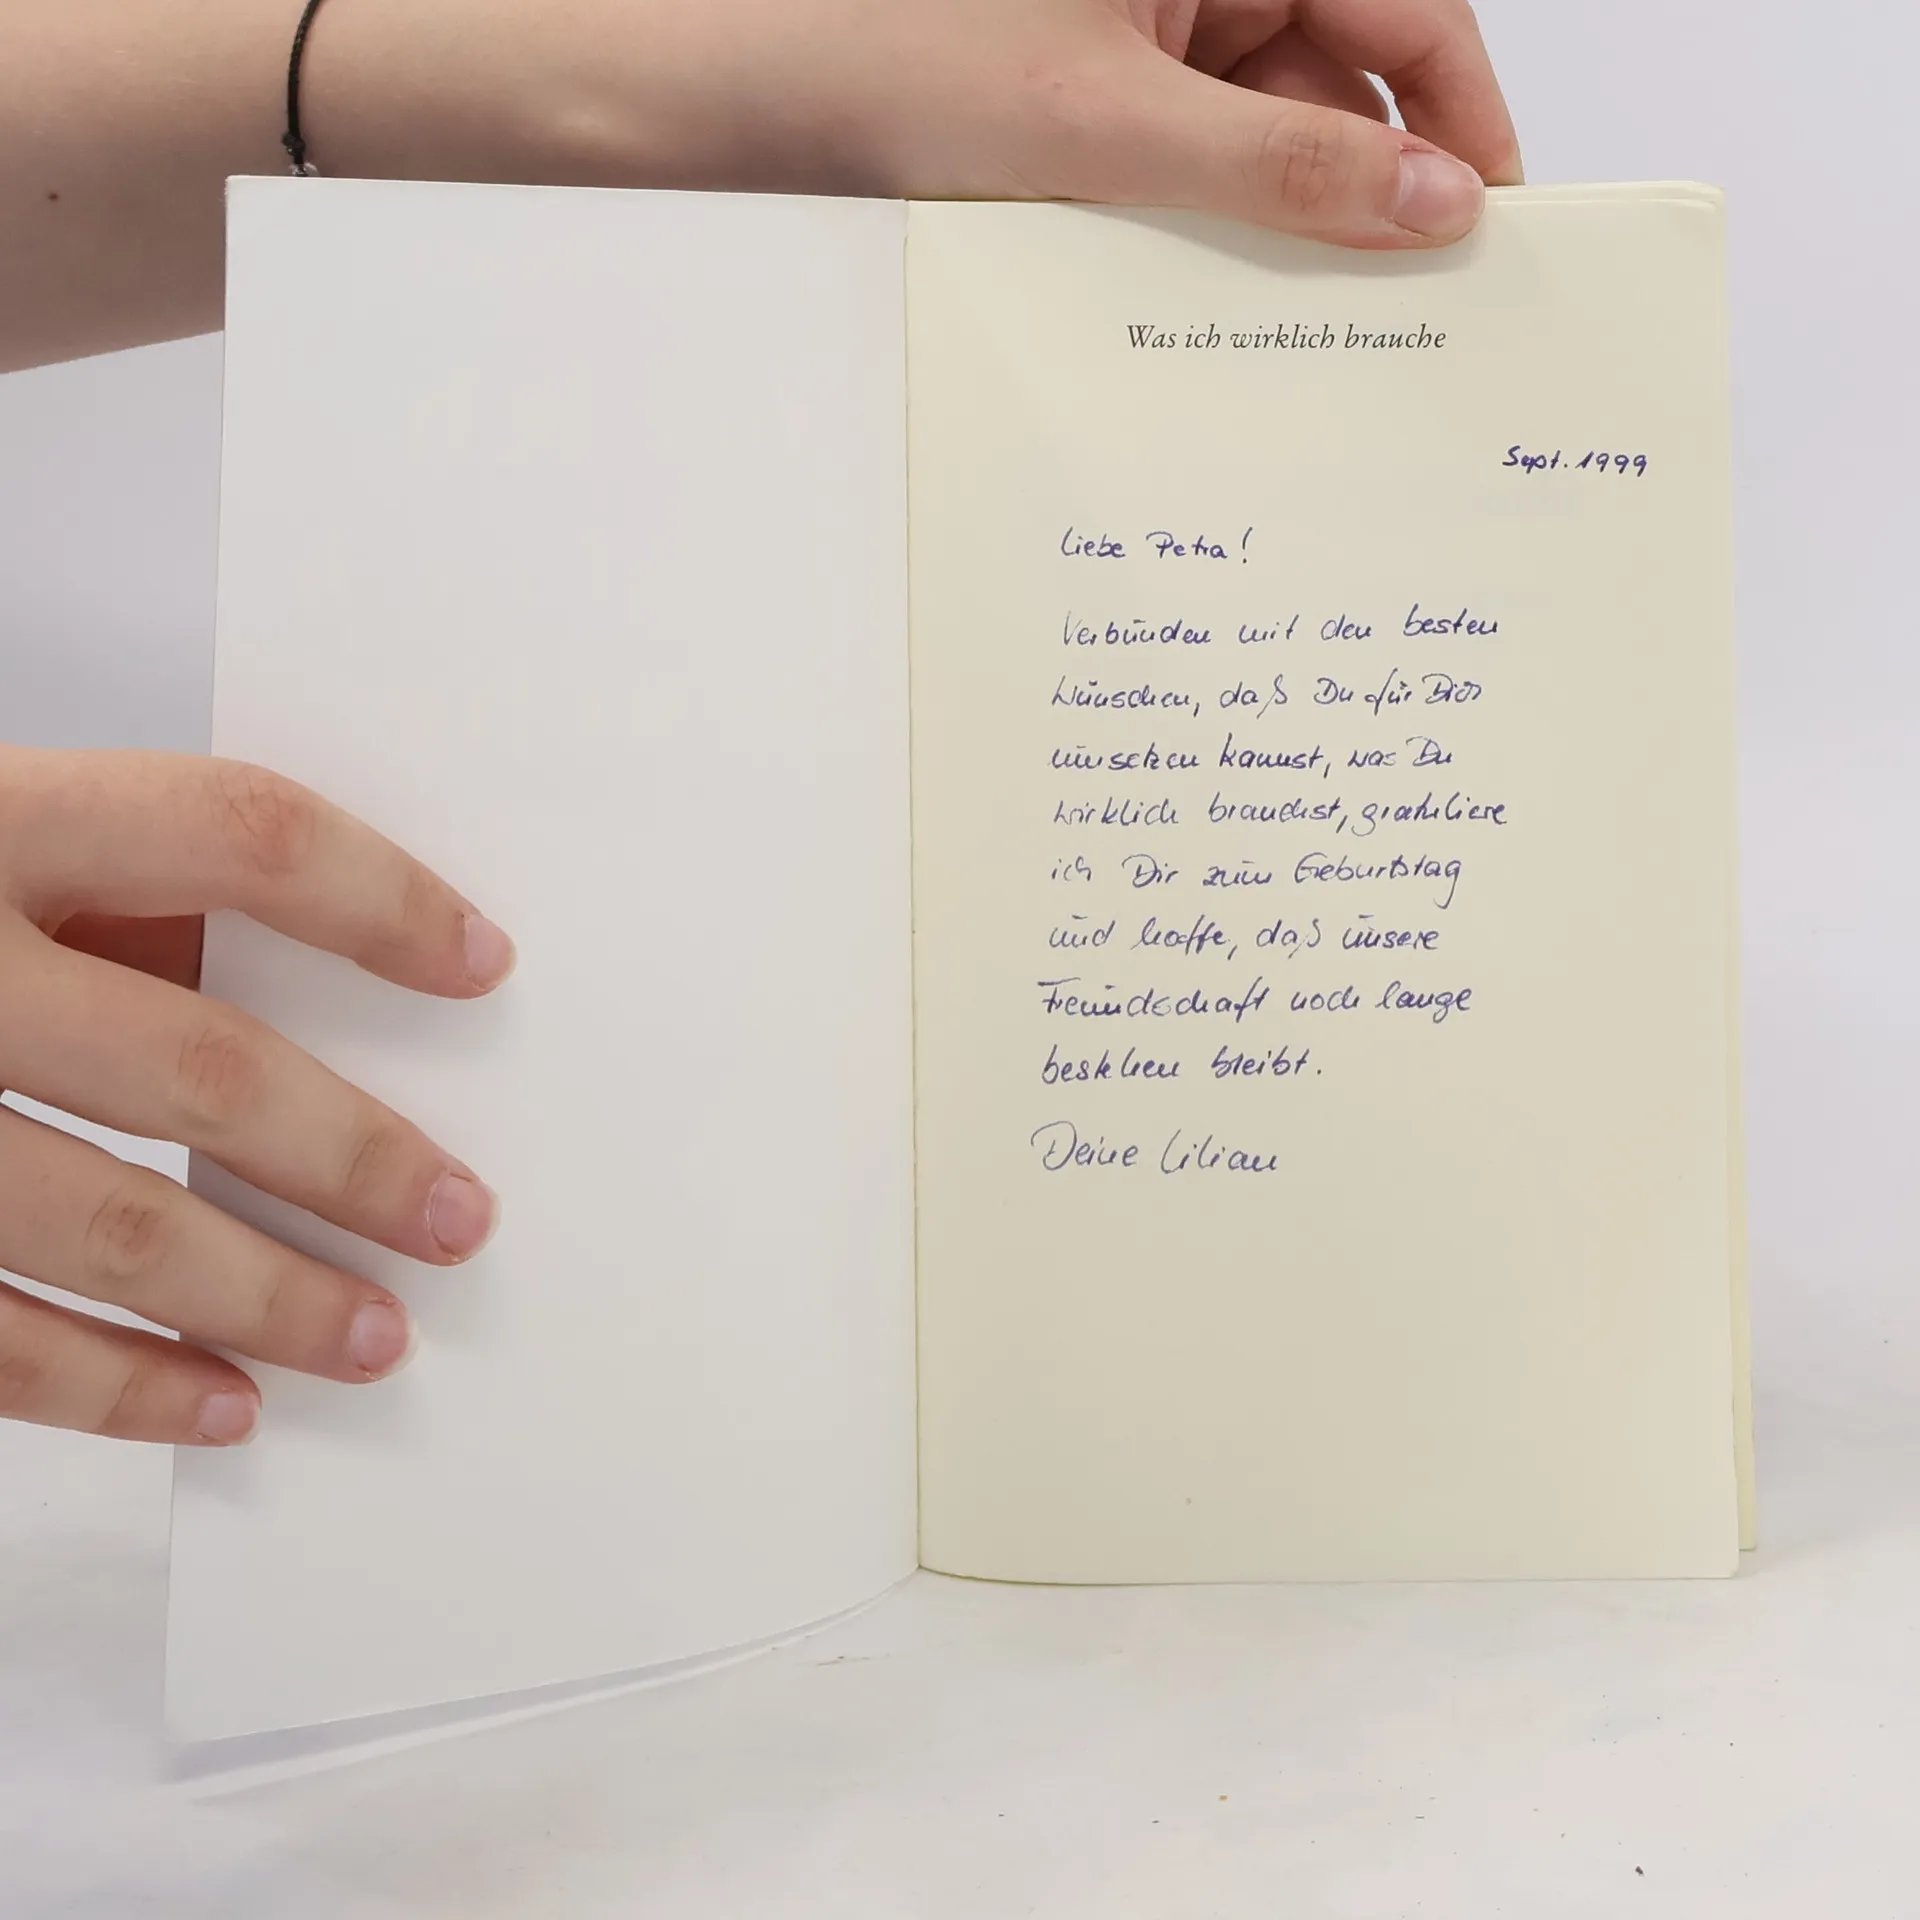 Was ich wirklich brauche
Sept. 1999
Liebe Petra!
Verbunden mit den besten
Wünschen, daß Du für Dich
umsetzen kannst, was Du
wirklich brauchst, gratuliere
ich Dir zum Geburtstag
und hoffe, daß unsere
Freundschaft noch lange
bestehen bleibt.
Deine Lilian